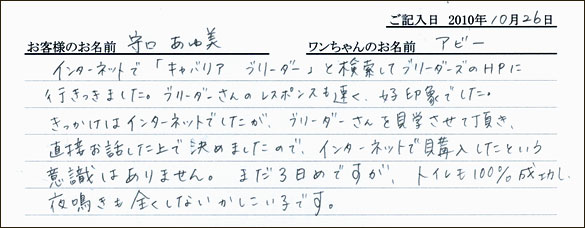 ご記入日 2010年10月26日
お客様のお名前 守口 あゆ美 ワンちゃんのお名前 アビー
インターネットで「キャバリア ブリーダー」と検索してブリーダーズのHPに
行きつきました。ブリーダーさんのレスポンスも速く、好印象でした。
きっかけはインターネットでしたが、ブリーダーさんを見学させて頂き、
直接お話した上で決めましたので、インターネットで購入したという
意識はありません。まだ3日めですが、トイレも100%成功し、
夜鳴きも全くしないかしこい子です。